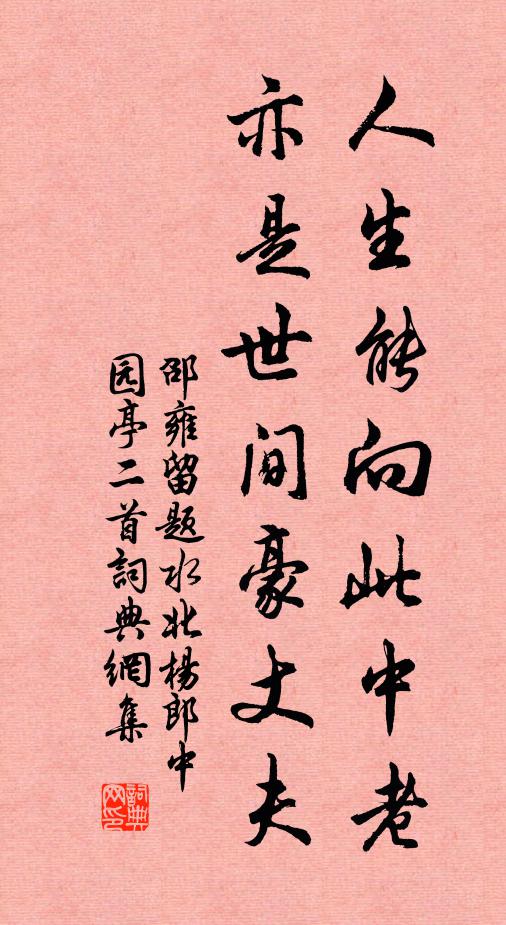 人生能向此中老
亦是世间豪丈夫
邵雍留题水北楊郎中
园亭二首詞典網集
詞典
网印